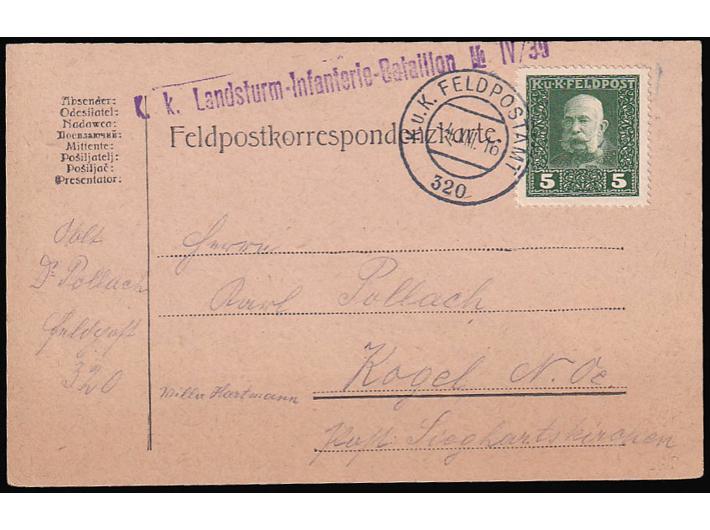 K. k. Landsturm-Infanterie-Bataillon № IV/39
K.u.K. FELDPOSTAMT
320
K.u.K. FELDPOST
5 5
Absender:
Odesilatel:
Nadawca:
Посилаючий:
Mittente:
Pošiljatelj:
Pošiljač:
Presentator:
Feldpostkorrespondenzkarte.
Dr Pollach
Feldpost
320
Herrn
Karl Pollach
Kogel N. Oe.
Villa Hartmann
Post Sieghartskirchen